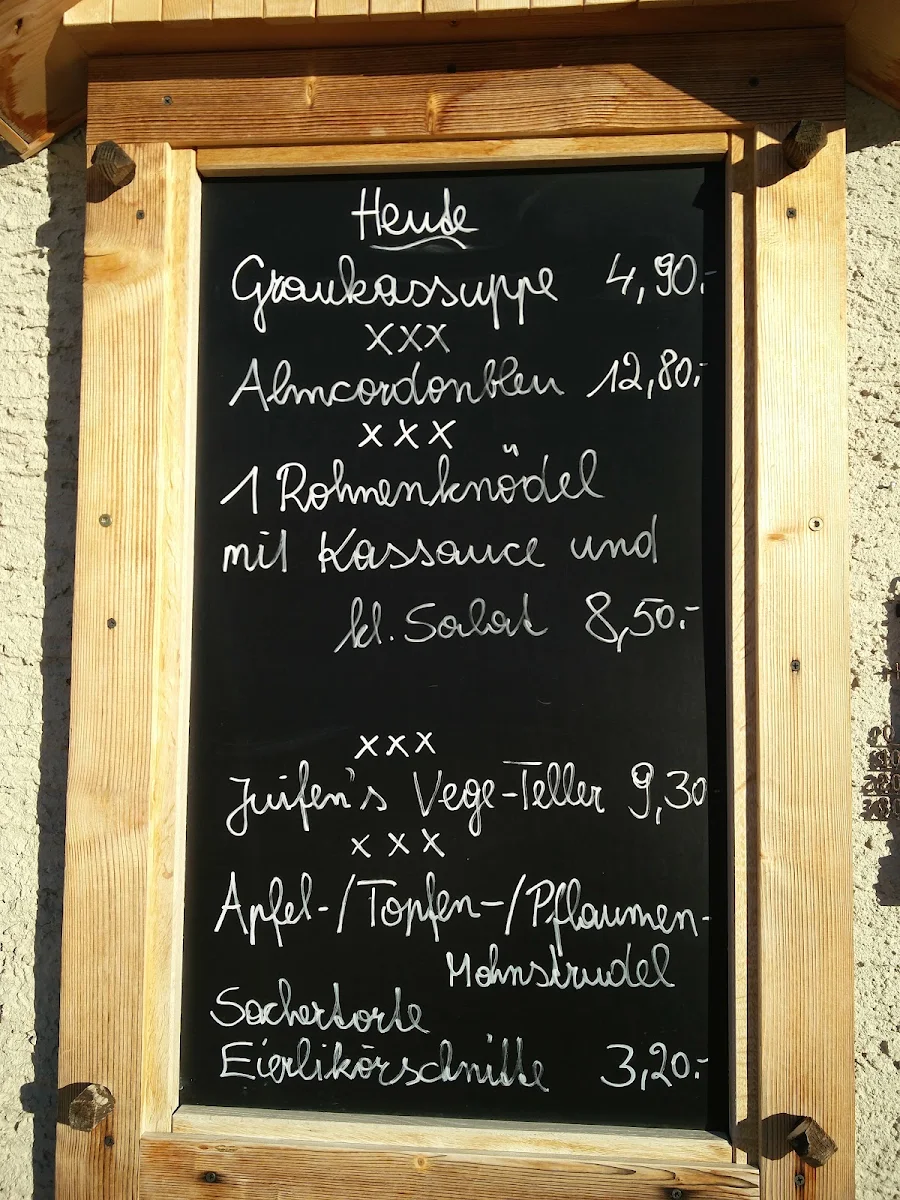 Heute
Graukassuppe 4,90.-
xxx
Almcordonbleu 12,80.-
xxx
1 Rohnenknödel
mit Kassauce und
kl. Salat 8,50.-
xxx
Juifen's Vege-Teller 9,30
xxx
Apfel-/Topfen-/Pflaumen-
Mohnstrudel
Sachertorte
Eierlikörschnitte 3,20.-